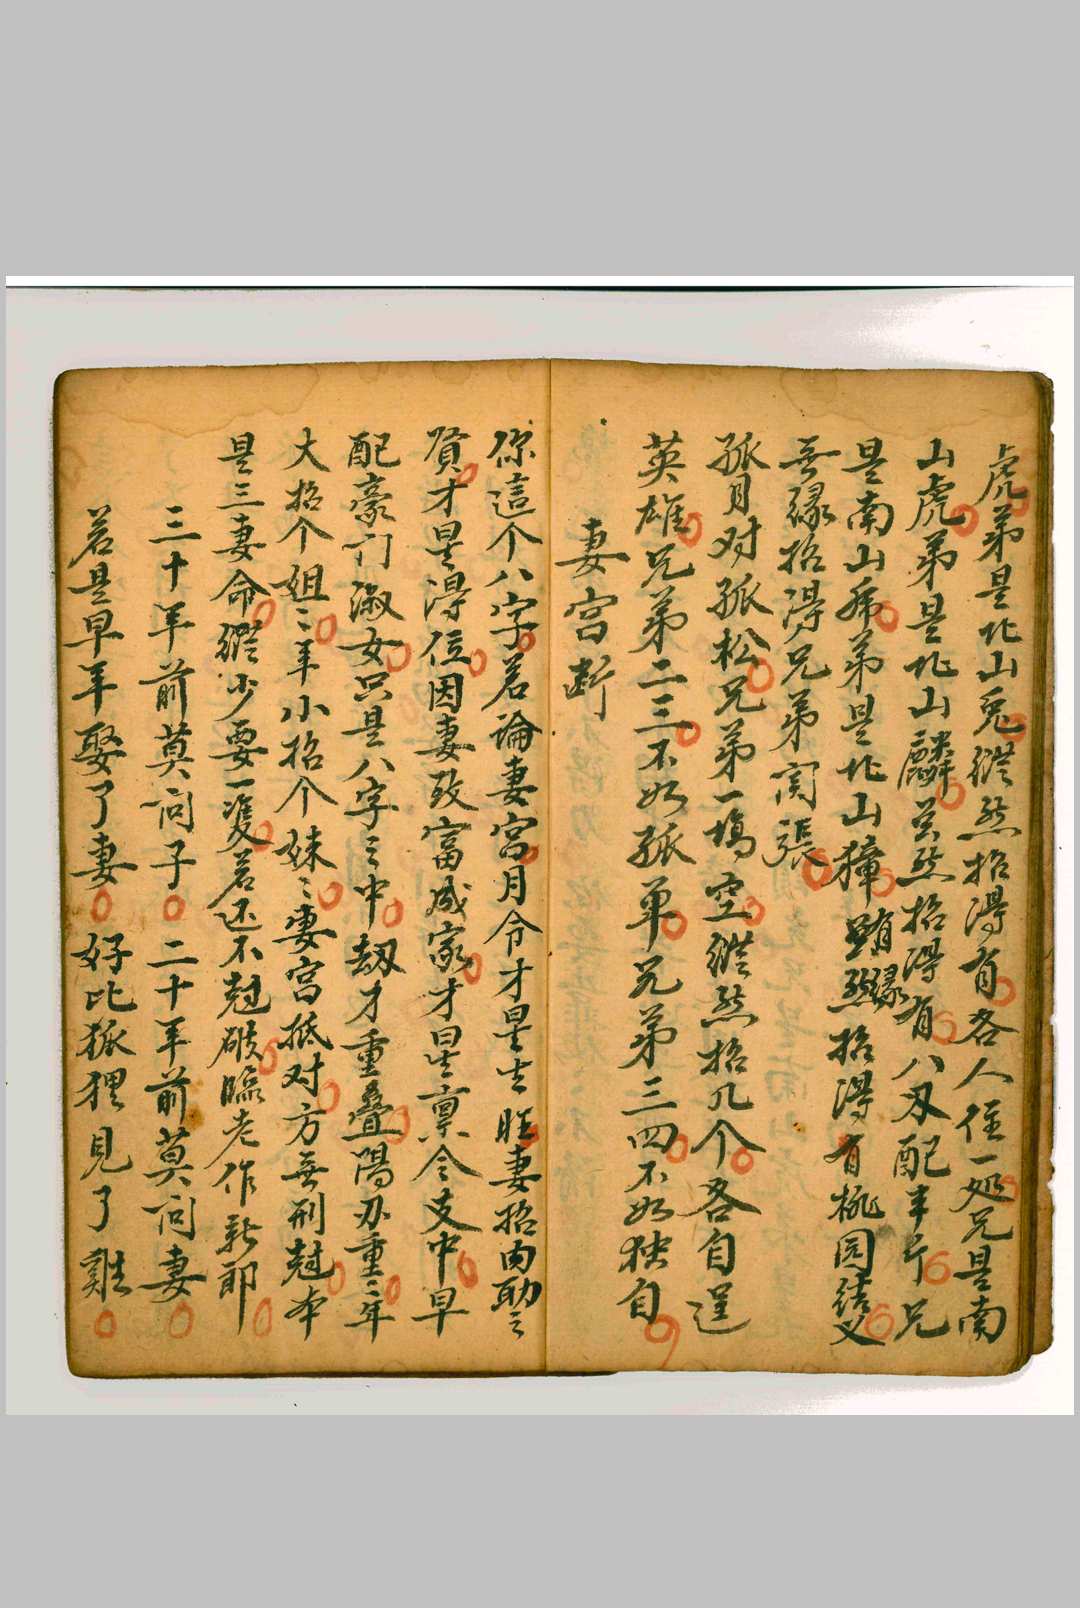 虎弟是北山兎縱然招得有各人住一処兄是南
山虎弟是北山麟兹然招得有八刃配半斤兄
是南山弟是北山獐縁然招得有桃园结义
無緣招得兄弟関張
孤月对孤松兄弟一塲空縱然招几个各自逞
英雄兄弟二三不如孤单兄弟三四不如独自
妻宫断
你這个八字若論妻宫月令才星生旺妻招内助之
賢才星得位因妻致富成家才星禀令支中早
配豪门淑女只是八字之中刼才重疊陽刃重三年
大招个姐三年小招个妹三妻宫抵对方無刑尅本
是三妻命縱少要一雙若还不尅破臨老作新郎
三十年前莫问子二十年前莫问妻
若是早年娶了妻好比狐狸見了雞